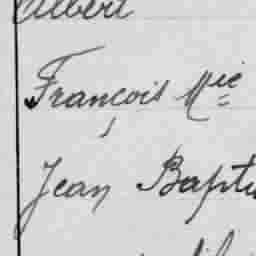 Albert
François Mie
Jean Baptis